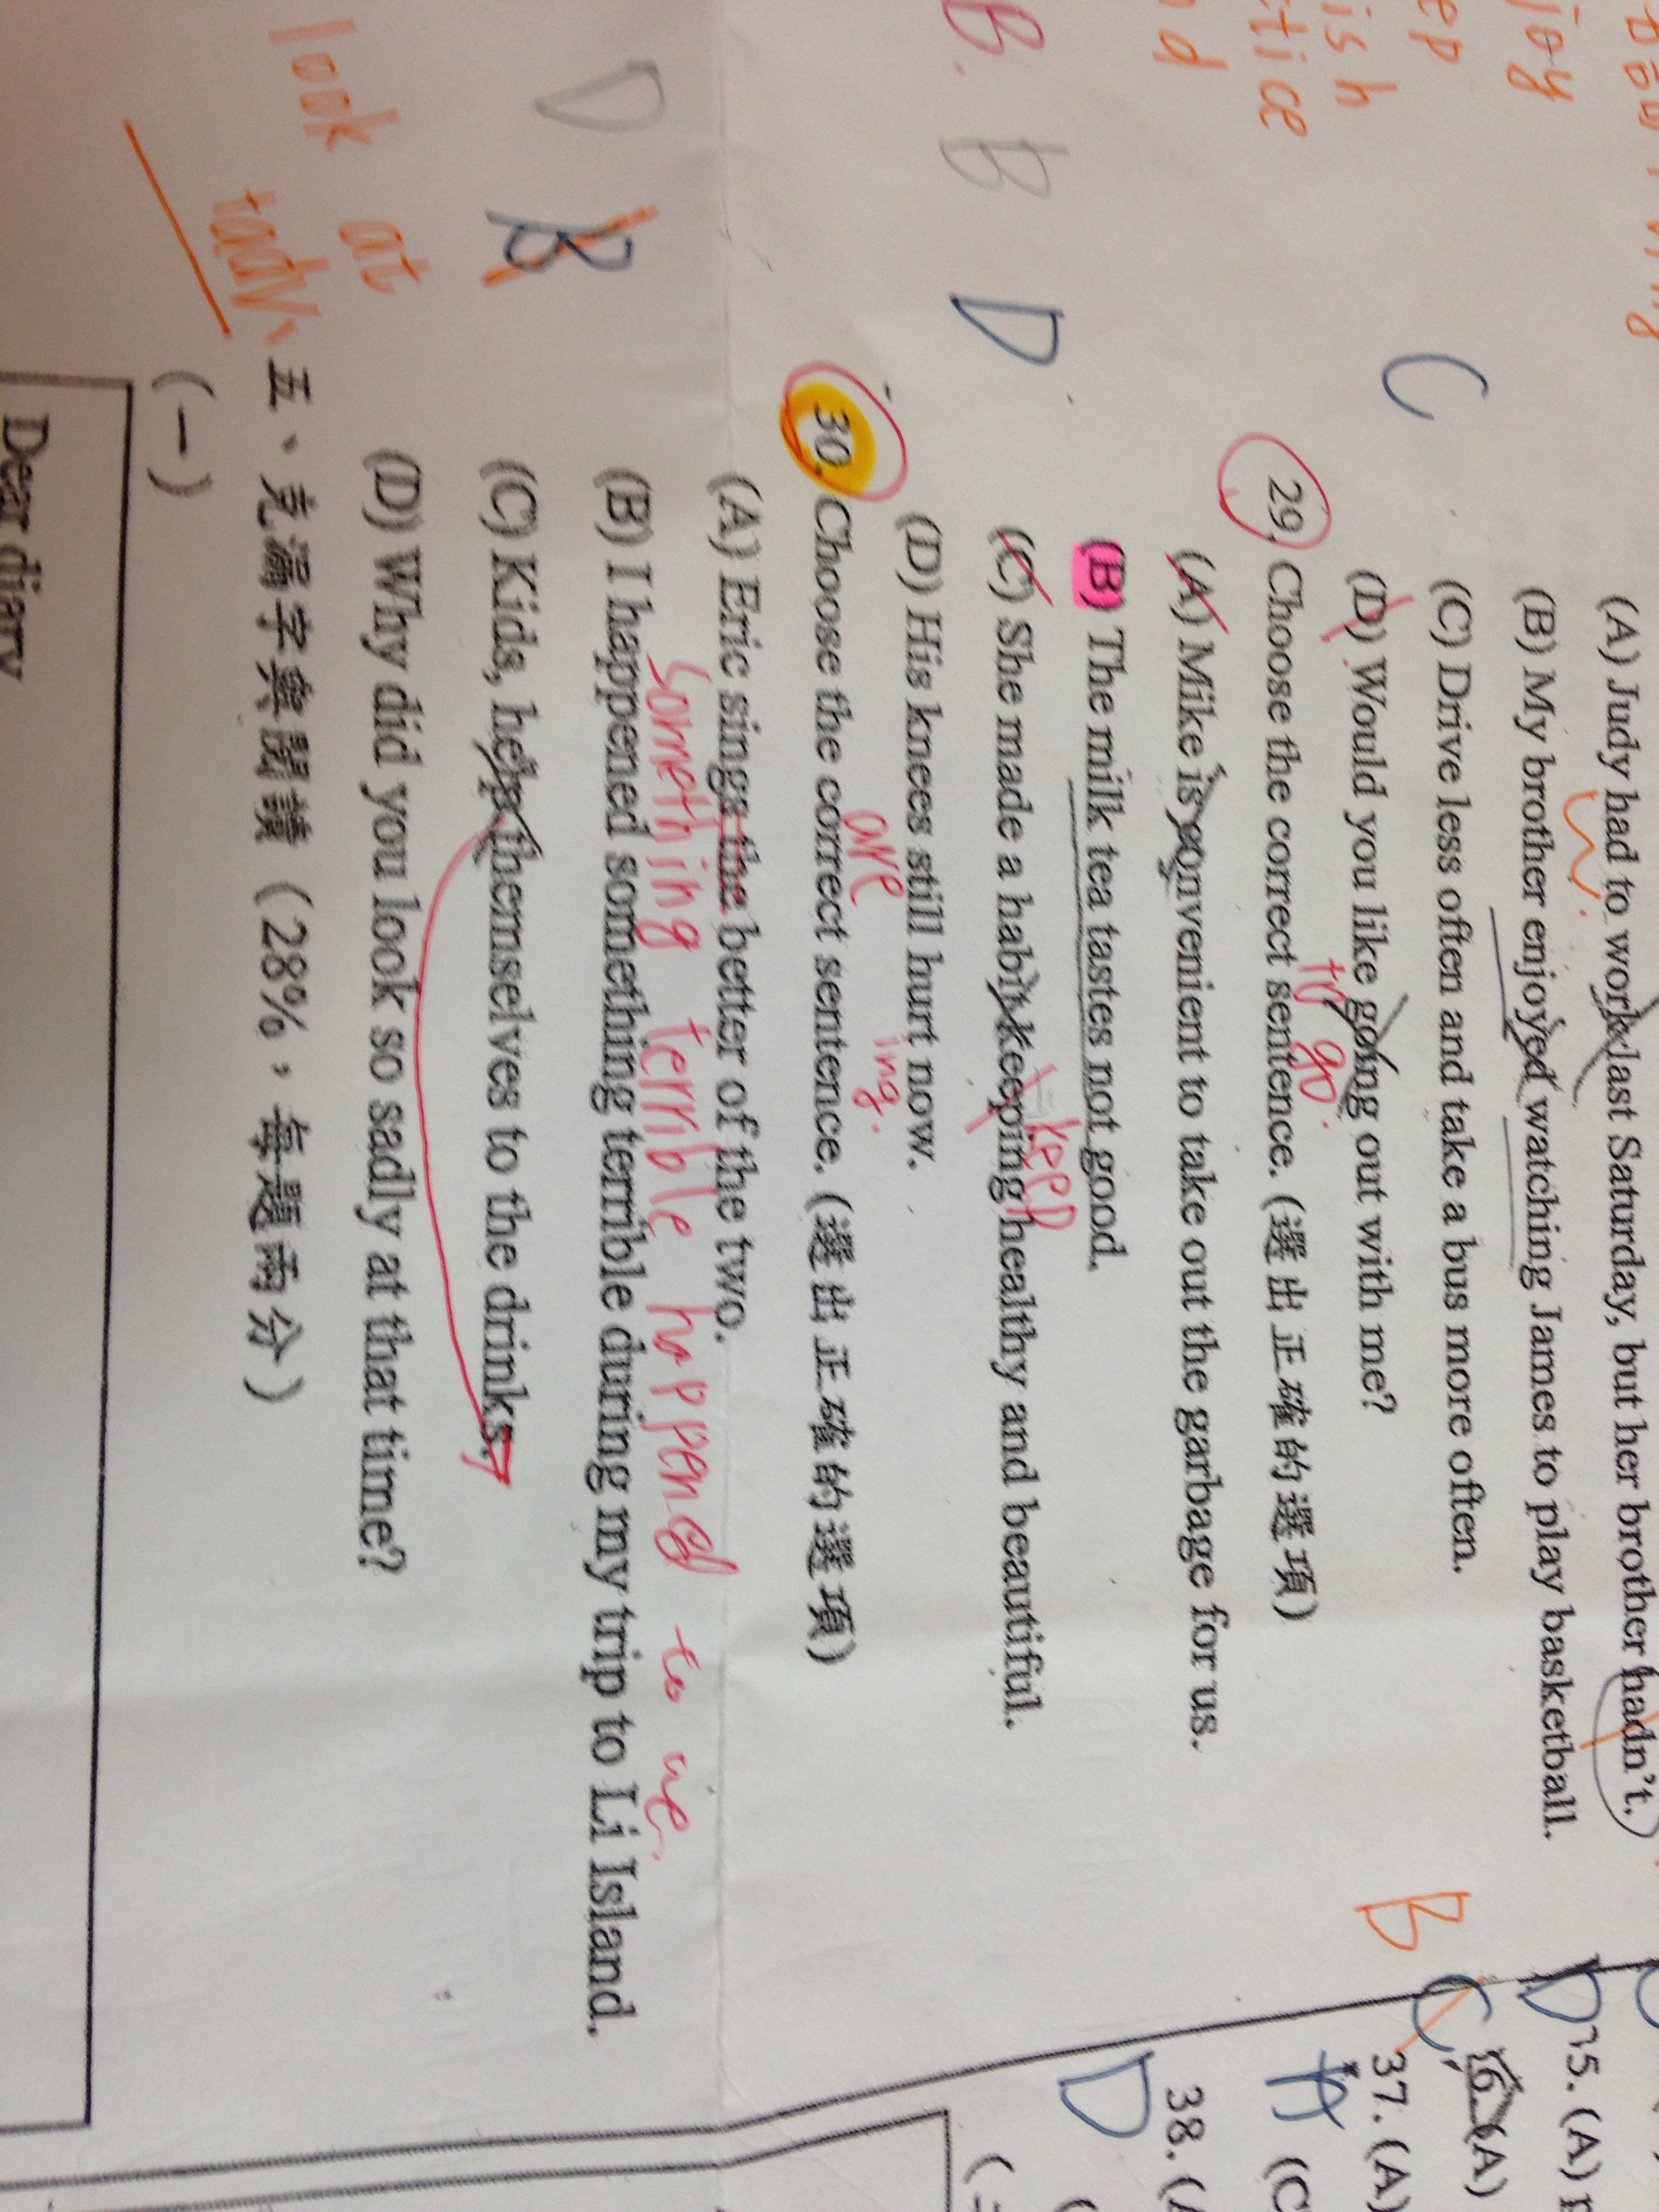 (A) Judy had to work last Saturday, but her brother hadn't.
(B) My brother enjoyed watching James to play basketball.
(C) Drive less often and take a bus more often.
C
(D) Would you like going out with me?
to go.
29. Choose the correct sentence. (選出正確的選項)
(A) Mike is convenient to take out the garbage for us.
(B) The milk tea tastes not good.
keep
B. B D
(C) She made a habit keeping healthy and beautiful.
(D) His knees still hurt now.
are ing.
30. Choose the correct sentence. (選出正確的選項)
(A) Eric sings the better of the two.
something terrible happened to me.
(B) I happened something terrible during my trip to Li Island.
D B
(C) Kids, help themselves to the drinks.
(D) Why did you look so sadly at that time?
look at
+adv.
五、克漏字與閱讀（28%，每題兩分）
(一)
Dear diary
joy
ep
ish
tice
nd
B
D
35. (A)
C
(A)
37. (A)
A
(C
38. (
D